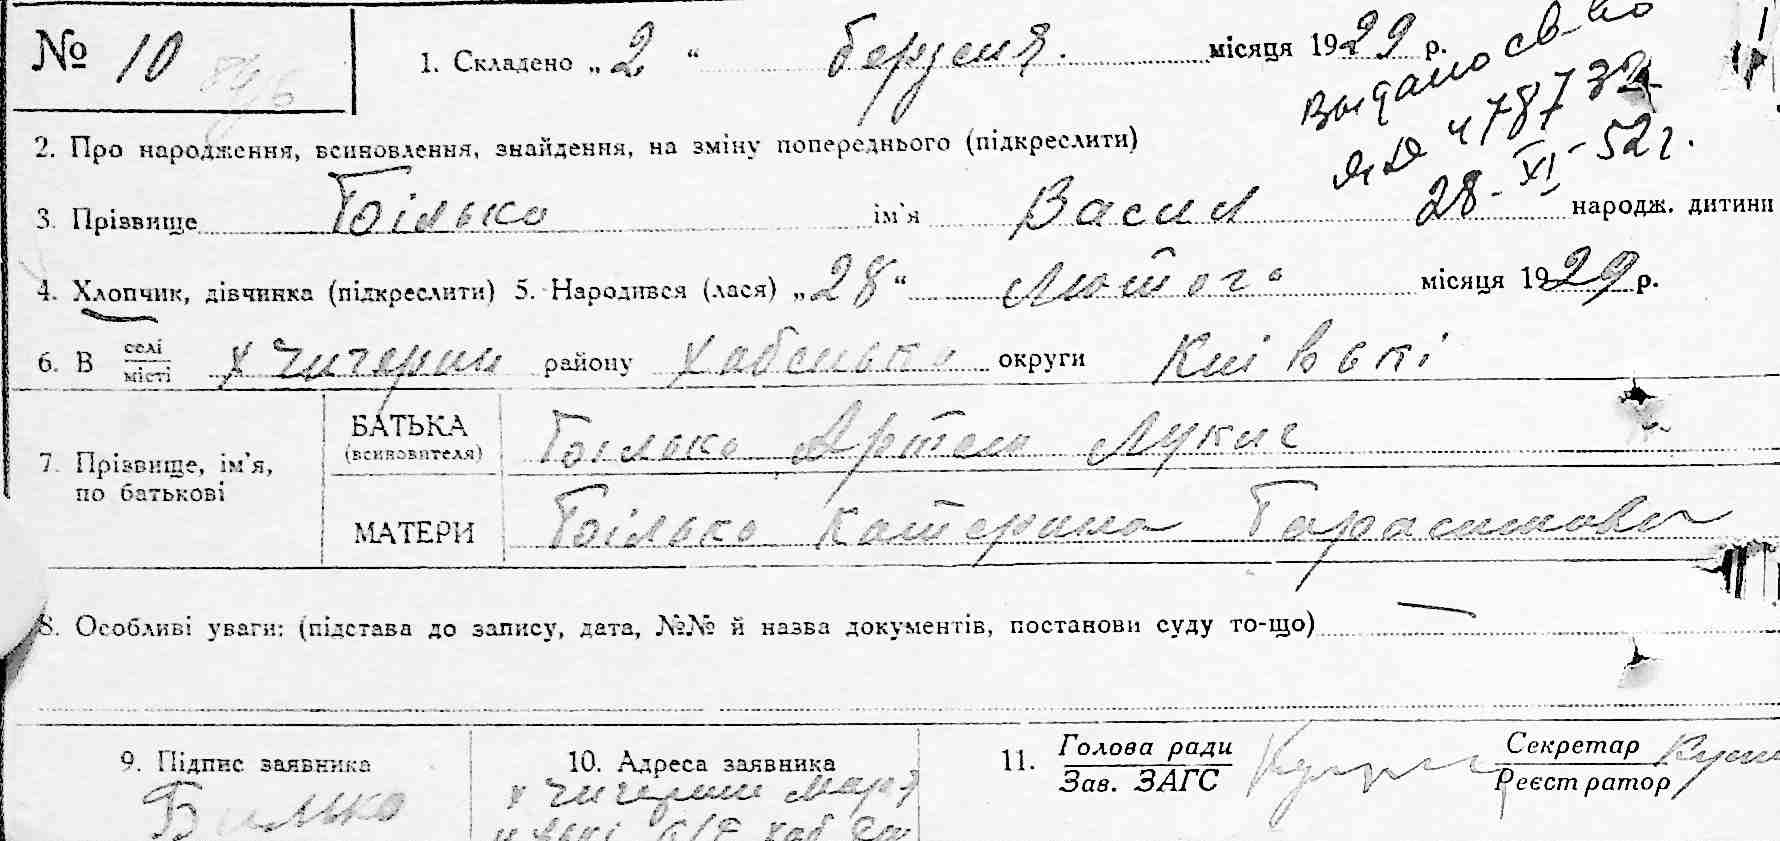 № 10
1. Складено „2“ березня. місяця 1929 р.
Выдано св-во
ЯЮ 478732
28-XI-52 г.
2. Про народження, всиновлення, знайдення, на зміну попереднього (підкреслити)
3. Прізвище Білько ім'я Васил народж. дитини
4. Хлопчик, дівчинка (підкреслити) 5. Народився (лася) „28“ Лютого місяця 1929 р.
6. В селі/місті х Чичерин району Хабенько округи Київькі
7. Прізвище, ім'я, по батькові
БАТЬКА (всиновителя) Білько Артем Лукис
МАТЕРИ Білько Катерина Тарасимови
8. Особливі уваги: (підстава до запису, дата, №№ й назва документів, постанови суду то-що) —
9. Підпис заявника
Билько
10. Адреса заявника
х Чичерин
11. Голова ради / Зав. ЗАГС
Секретар / Реєстратор